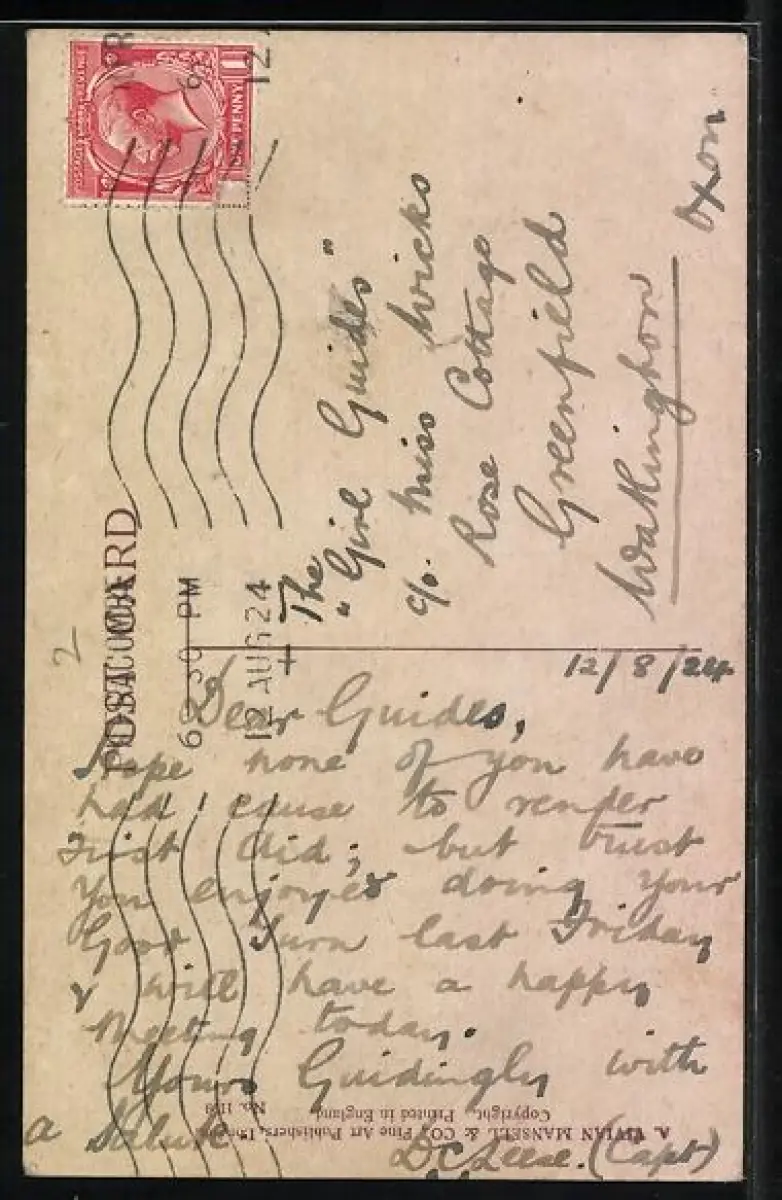 POST CARD
6 30 PM
12 AUG 24
ONE PENNY
2
The
"Girl Guides"
c/o. Miss Wicks
Rose Cottage
Greenfield
Watlington
Oxon
12/8/24
Dear Guides,
Hope none of you have
had cause to render
First Aid; but trust
you enjoyed doing your
Good Turn last Friday
& will have a happy
Meeting today.
Yours Guidingly with
a Salute
D C Leese. (Capt)
A. VIVIAN MANSELL & CO., Fine Art Publishers,
Copyright. Printed in England